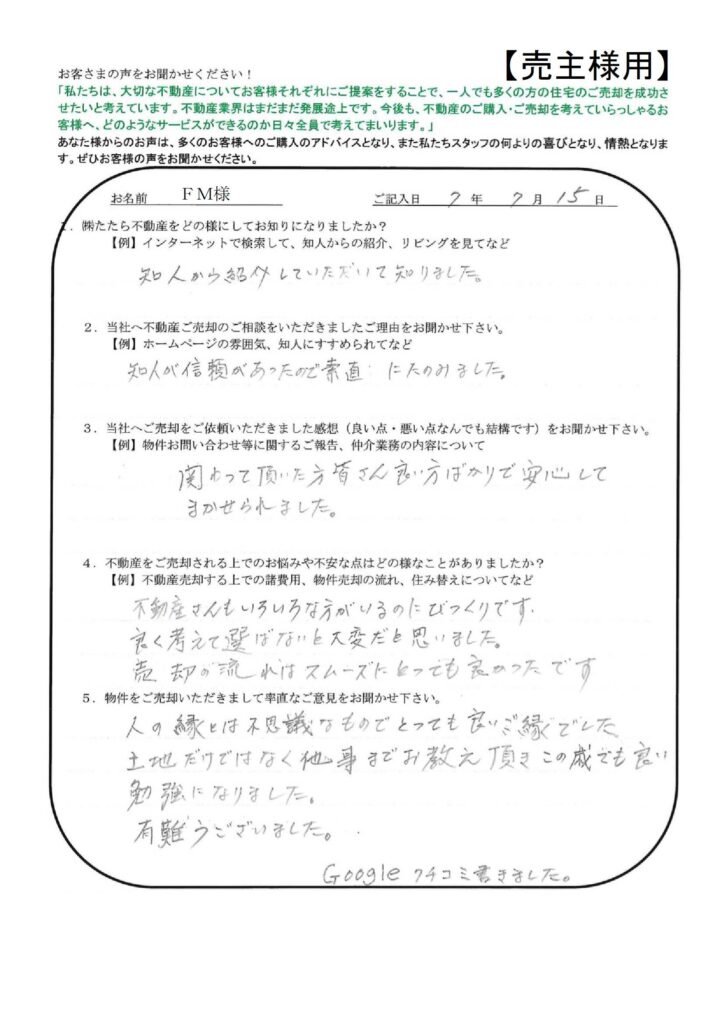 【売主様用】
お客さまの声をお聞かせください！
「私たちは、大切な不動産についてお客様それぞれにご提案をすることで、一人でも多くの方の住宅のご売却を成功さ
せたいと考えています。不動産業界はまだまだ発展途上です。今後も、不動産のご購入・ご売却を考えていらっしゃるお
客様へ、どのようなサービスができるのか日々全員で考えてまいります。」
あなた様からのお声は、多くのお客様へのご購入のアドバイスとなり、また私たちスタッフの何よりの喜びとなり、情熱となりま
す。ぜひお客様の声をお聞かせください。
お名前 FM様 ご記入日 7 年 7 月 15 日
1．㈱たたら不動産をどの様にしてお知りになりましたか？
【例】インターネットで検索して、知人からの紹介、リビングを見てなど
知人から紹介していただいて知りました。
2．当社へ不動産ご売却のご相談をいただきましたご理由をお聞かせ下さい。
【例】ホームページの雰囲気、知人にすすめられてなど
知人が信頼があったので素直にたのみました。
3．当社へご売却をご依頼いただきました感想（良い点・悪い点なんでも結構です）をお聞かせ下さい。
【例】物件お問い合わせ等に関するご報告、仲介業務の内容について
関わって頂いた方皆さん良い方ばかりで安心して
まかせられました。
4．不動産をご売却される上でのお悩みや不安な点はどの様なことがありましたか？
【例】不動産売却する上での諸費用、物件売却の流れ、住み替えについてなど
不動産さんもいろいろな方がいるのにびっくりです.
良く考えて選ばないと大変だと思いました。
売却の流れはスムーズにとっても良かったです
5．物件をご売却いただきまして率直なご意見をお聞かせ下さい。
人の縁とは不思議なものでとっても良いご縁でした
土地だけではなく他事までお教え頂きこの歳でも良い
勉強になりました。
有難うございました。
Google クチコミ書きました。